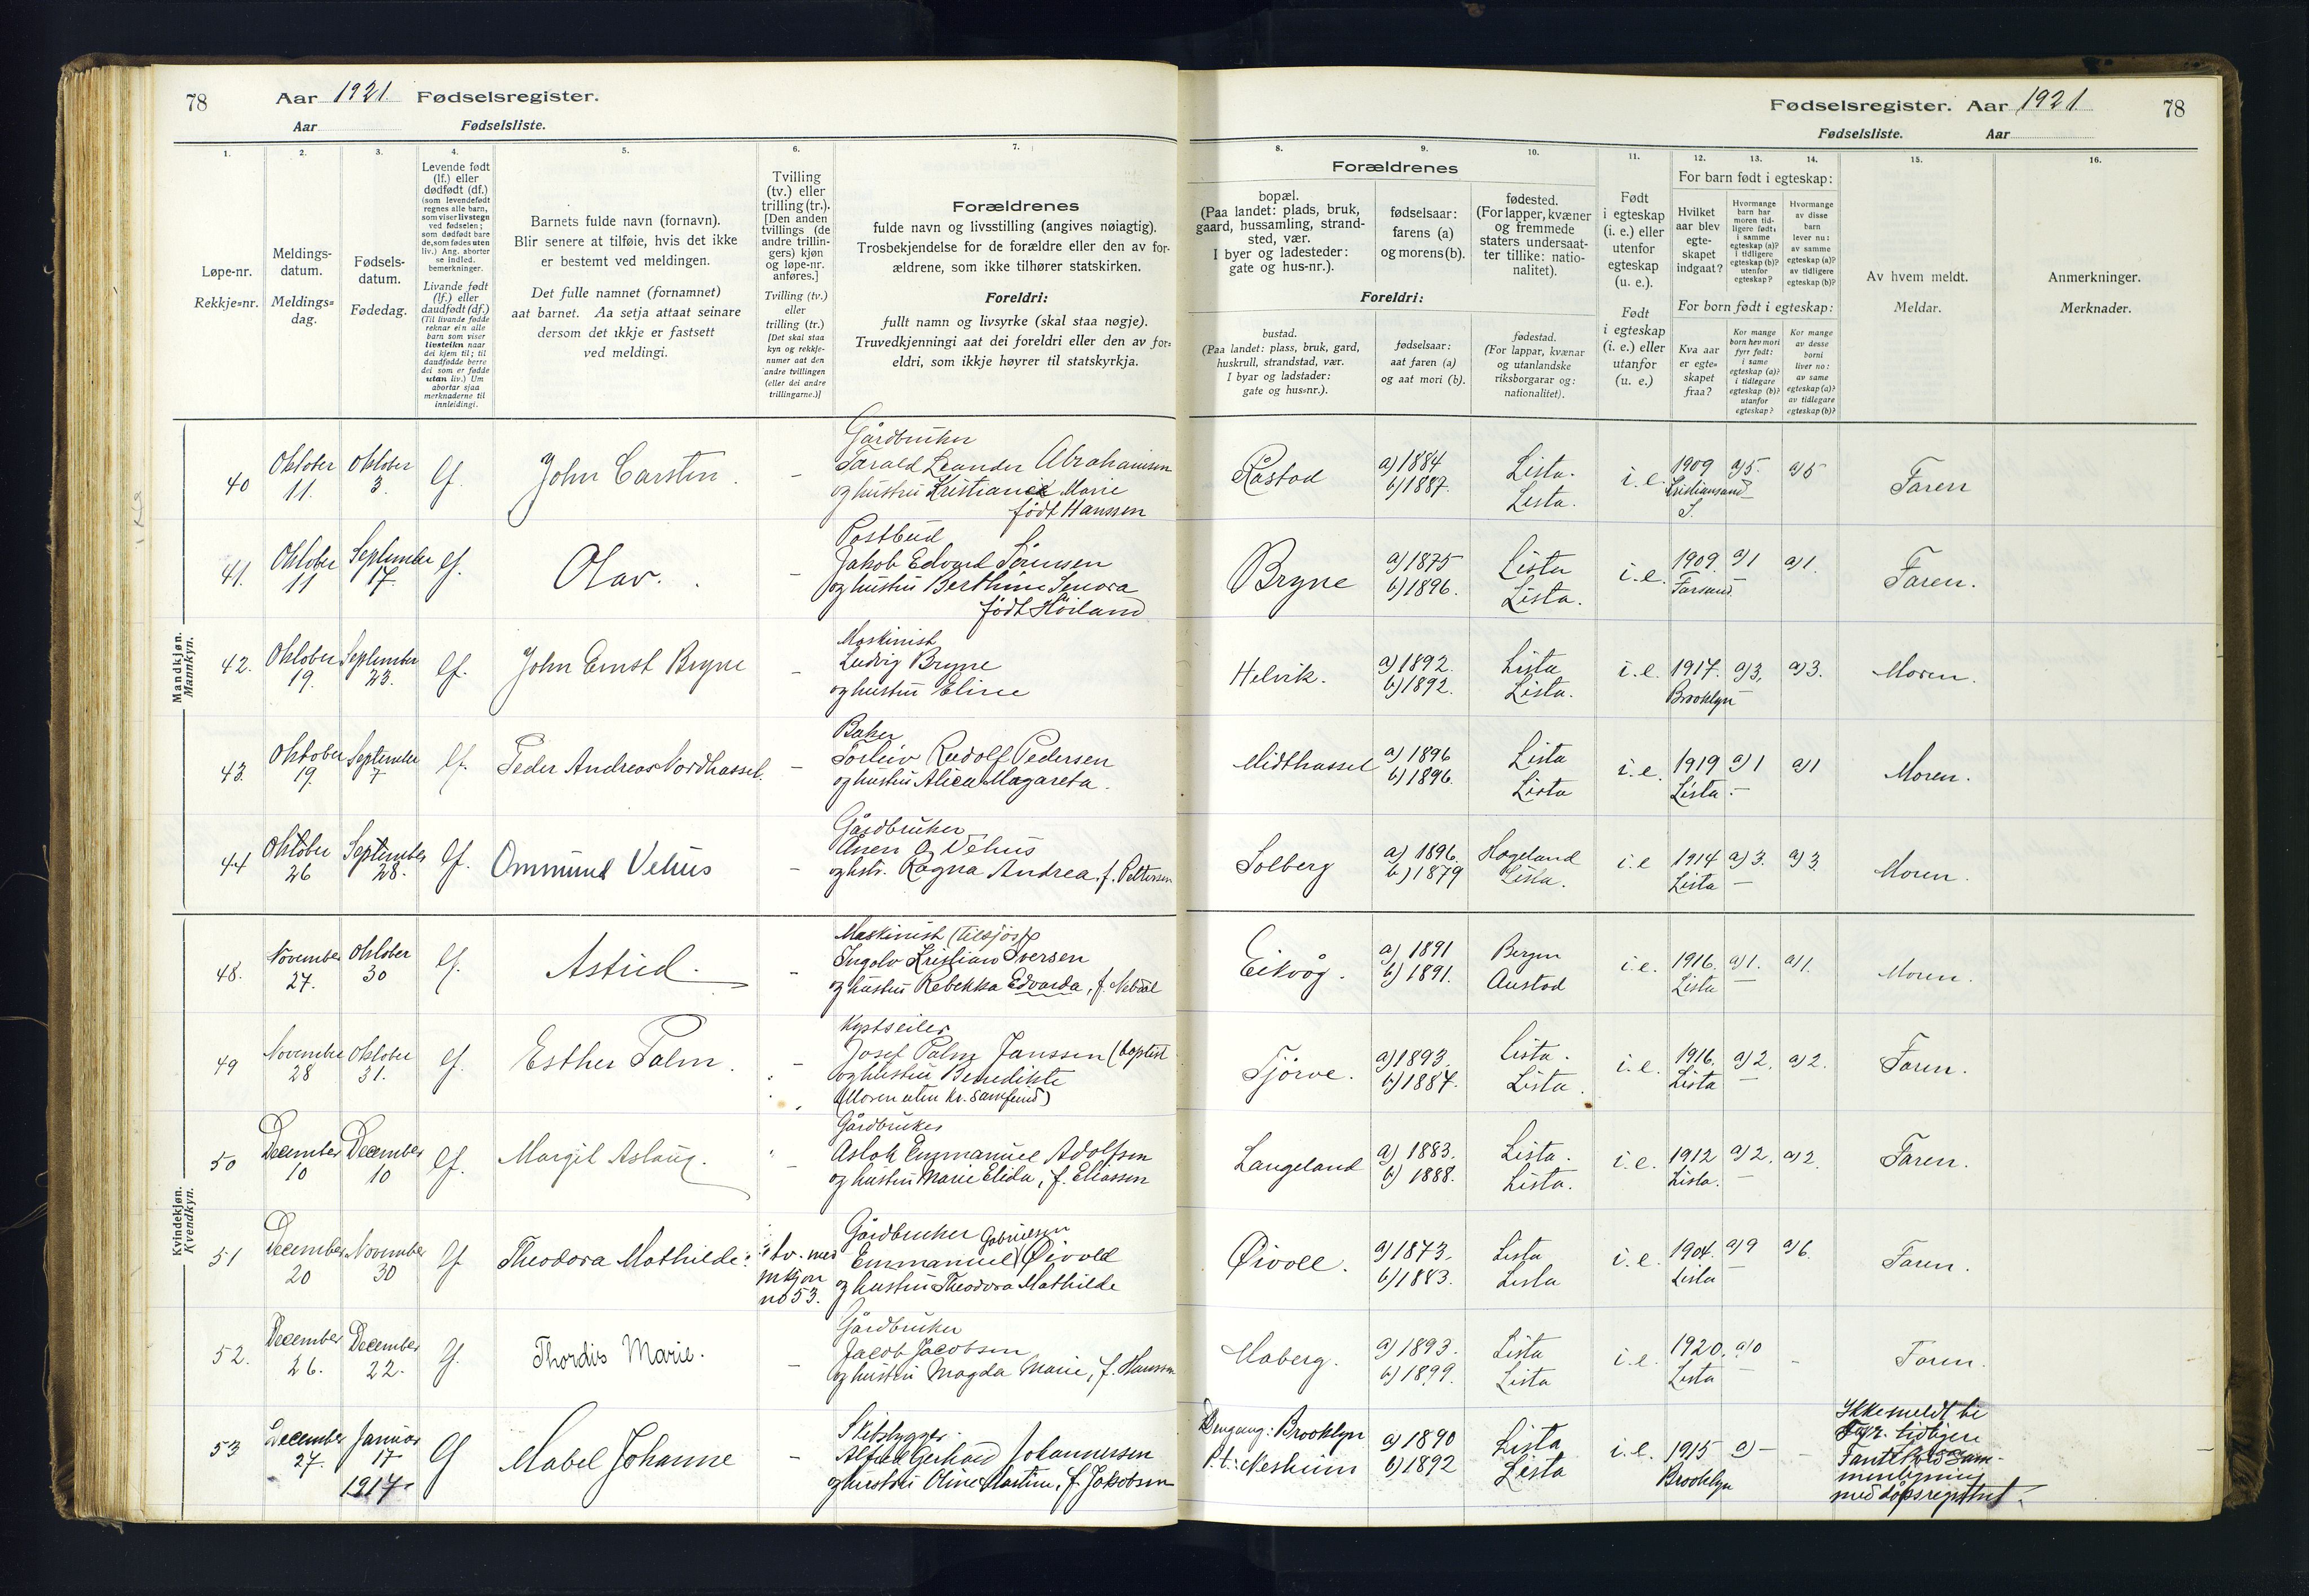 78 Aar 1921. Fødselsregister.
Aar Fødselsliste.
Fødselsregister. Aar 1921 78
Fødselsliste. Aar
1. 2. 3. 4. 5. 6. 7. 8. 9. 10. 11. 12. 13. 14. 15. 16.
Løpe-nr.
Rekkje=nr.
Meldings-
datum.
Meldings=
dag.
Fødsels-
datum.
Fødedag.
Levende født
(lf.) eller
dødfødt (df.)
(som levendefødt
regnes alle barn,
som viser livstegn
ved fødselen;
som dødfødt bare
de, som fødes uten
liv.) Ang. aborter
se indled.
bemerkninger.
Livande født
(lf.) eller
daudfødt (df.)
(Til livande fødde
reknar ein alle
barn som viser
livsteikn naar
dei kjem til; til
daudfødde berre
dei som er fødde
utan liv.) Um
abortar sjaa
merknaderne til
innleidingi.
Barnets fulde navn (fornavn).
Blir senere at tilføie, hvis det ikke
er bestemt ved meldingen.
Det fulle namnet (fornamnet)
aat barnet. Aa setja attaat seinare
dersom det ikkje er fastsett
ved meldingi.
Tvilling
(tv.) eller
trilling (tr.).
[Den anden
tvillings (de
andre trillin-
gers) kjøn
og løpe-nr.
anføres.]
Tvilling (tv.)
eller
trilling (tr.)
[Det skal staa
kyn og rekkje-
numer aat den
andre tvillingen
(eller dei andre
trillingarne.)]
Forældrenes
fulde navn og livsstilling (angives nøiagtig).
Trosbekjendelse for de forældre eller den av for-
ældrene, som ikke tilhører statskirken.
Foreldri:
fullt namn og livsyrke (skal staa nøgje).
Truvedkjenningi aat dei foreldri eller den av for=
eldri, som ikkje høyrer til statskyrkja.
Forældrenes
bopæl.
(Paa landet: plads, bruk,
gaard, hussamling, strand-
sted, vær.
I byer og ladesteder:
gate og hus-nr.).
fødselsaar:
farens (a)
og morens (b).
fødested.
(For lapper, kvæner
og fremmede
staters undersaat-
ter tillike: natio-
nalitet).
Foreldri:
bustad.
(Paa landet: plass, bruk, gard,
huskrull, strandstad, vær.
I byar og ladstader:
gate og hus=nr.).
fødselsaar:
aat faren (a)
og aat mori (b).
fødestad.
(For lappar, kvænar
og utanlandske
riksborgarar og:
nationalitet).
Født
i egteskap
(i. e.) eller
utenfor
egteskap
(u. e.).
Født
i egteskap
(i. e.) eller
utanfor
(u. e.)
For barn født i egteskap:
Hvilket
aar blev
egte-
skapet
indgaat?
Hvormange
barn har
moren tid-
ligere født:
i samme
egteskap (a)?
i tidligere
egteskap (b)?
utenfor
egteskap?
Hvormange
av disse
barn
lever nu:
av samme
egteskap (a)?
av tidligere
egteskap (b)?
For born født i egteskap:
Kva aar
er egte=
skapet
fraa?
Kor mange
born hev mori
fyrr født:
i same
egteskap (a)?
i tidlegare
egteskap (b)?
utanfor
egteskap?
Kor mange
av desse
borni
liver no:
av same
egteskap (a)?
av tidlegare
egteskap (b)?
Av hvem meldt.
Meldar.
Anmerkninger.
Merknader.
Mandkjøn.
Mannkyn.
40 Oktober 11. Oktober 3. lf. John Carsten. –
Gårdbruker
Tarald Leander Abrahamsen
og hustru Kristiane Marie
født Hanssen
Råstad a) 1884 b) 1887. Lista. Lista. i. e. 1909 Kristiansand S. a) 5. a) 5 Faren
41. Oktober 11 September 17. lf. Olav. –
Postbud
Jakob Edvard Sørensen
og hustru Berthine Senora
født Höiland
Bryne a) 1875 b) 1896. Lista Lista. i. e. 1909. Farsund a) 1 a) 1. Faren.
42. Oktober 19. September 23. lf. John Ernst Bryne –
Maskinist
Ludvig Bryne
og hustru Eline
Helvik. a) 1892. b) 1892. Lista Lista. i. e. 1917. Brooklyn a) 3. a) 3. Moren.
43. Oktober 19. September 7 lf. Peder Andreas Nordhassel. –
Baker
Torleiv Rudolf Pedersen
og hustru Alica Magareta.
Midthassel a) 1896 b) 1896. Lista Lista i. e. 1919 Lista. a) 1 a) 1 Moren.
44 Oktober 26 September 28. lf. Ommund Vehus –
Gårdbruker
Ånen O Vehus
og hstr. Ragna Andrea, f. Pettersen
Solberg a) 1896. b) 1879 Hægeland Lista. i. e 1914 Lista a) 3. a) 3 Moren.
Kvindekjøn.
Kvendkyn.
48. November 27. Oktober 30 lf. Astrid. –
Maskinist (tilsjøs)
Ingolv Kristian Iversen
og hustru Rebekka Edvarda, f. Nebdal
Eikvåg. a) 1891 b) 1891. Bergen Austad i. e. 1916. Lista a) 1. a) 1. Moren.
49 November 28 Oktober 31. lf. Esther Palm. –
Kystseiler
Josef Palm Janssen (baptist
og hustru Benedikte
(Moren uten kr. samfund)
Tjörve. a) 1893. b) 1887. Lista. Lista. i. e. 1916. Lista a) 2. a) 2. Faren.
50 December 10 December 10 lf. Margit Aslaug. –
Gårdbruker
Aslak Emmanuel Adolfsen
og hustru Marie Elida, f. Eliassen
Langeland a) 1883. b) 1888. Lista. Lista. i. e. 1912 Lista. a) 2. a) 2. Faren.
51 December 20 November 30 lf Theodora Mathilde. tv. med mkjøn no 53.
Gårdbruker Gabrielsen
Emmanuel Øivold
og hustru Theodora Mathilde
Øivoll. a) 1873. b) 1883. Lista Lista i. e. 1904. Lista a) 9 a) 6. Faren.
52. December 26. December 22. lf. Thordis Marie. –
Gårdbruker
Jacob Jacobsen
og hustru Magda Marie, f. Hanssen
Maberg. a) 1893. b) 1899. Lista Lista i. e. 1920. Lista a) 0 – Faren.
53 December 27. Januar 17 1917. lf Mabel Johanne –
Skibsbygger
Alfred Gerhard Johannessen
og hustru Oline Martine, f. Jakobsen
Dengang: Brooklyn
P. t.: Nesheim a) 1890 b) 1892 Lista Lista i. e. 1915 Brooklyn a) – –
Ikke meldt til
tidligere
sam-
menligning
med dåpsregistret.